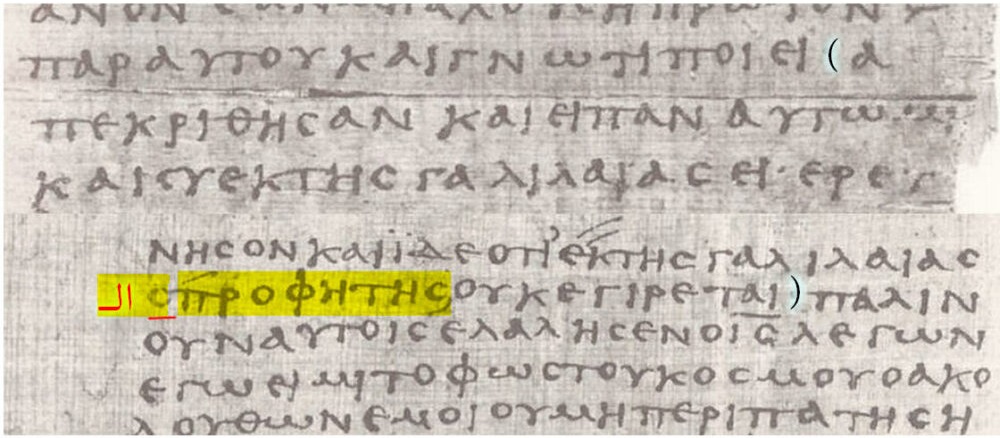 ΠΑΡΑΥΤΟΥΚΑΙΓΝΩΤΙΠΟΙΕΙ (Α
ΠΕΚΡΙΘΗϹΑΝ ΚΑΙΕΙΠΑΝΑΥΤΩ
ΚΑΙϹΥΕΚΤΗϹΓΑΛΙΛΑΙΑϹΕΙ·ΕΡΕ·
ΝΗϹΟΝΚΑΙΪΔΕΟΤΙΕΚΤΗϹΓΑΛΙΛΑΙΑϹ
ال ϹΠΡΟΦΗΤΗϹΟΥΚΕΓΙΡΕΤΑΙ) ΠΑΛΙΝ
ΟΥΝΑΥΤΟΙϹΕΛΑΛΗϹΕΝΟΙ̅Ϲ̅ΛΕΓΩΝ
ΕΓΩΕΙΜΙΤΟΦΩϹΤΟΥΚΟϹΜΟΥΟΑΚΟ
ΛΟΥΘΩΝΕΜΟΙΟΥΜΗΠΕΡΙΠΑΤΗϹΗ